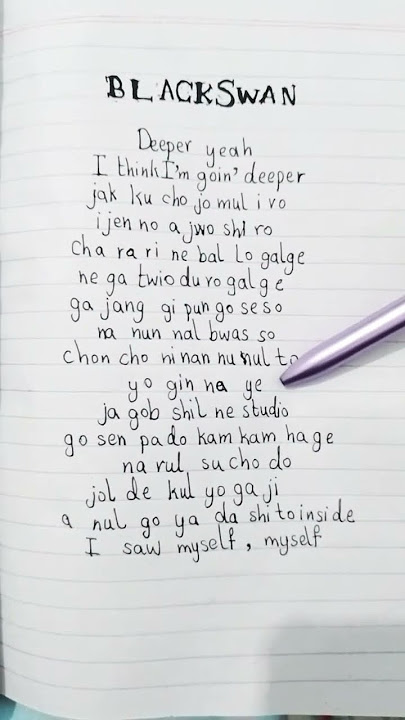 BLACKSWAN
Deeper yeah
I think I'm goin' deeper
jak ku cho jo mul i vo
ijen no a jwo shi ro
cha ra ri ne bal lo galge
ne ga twio du ro galge
ga jang gi pun go se so
na nun nal bwas so
chon cho ni nan nu nul to
yo gin na ye
ja gob shil ne studio
go sen pa do kam kam ha ge
na rul su cho do
jol de kul yo ga ji
a nul go ya da shi to inside
I saw myself, myself